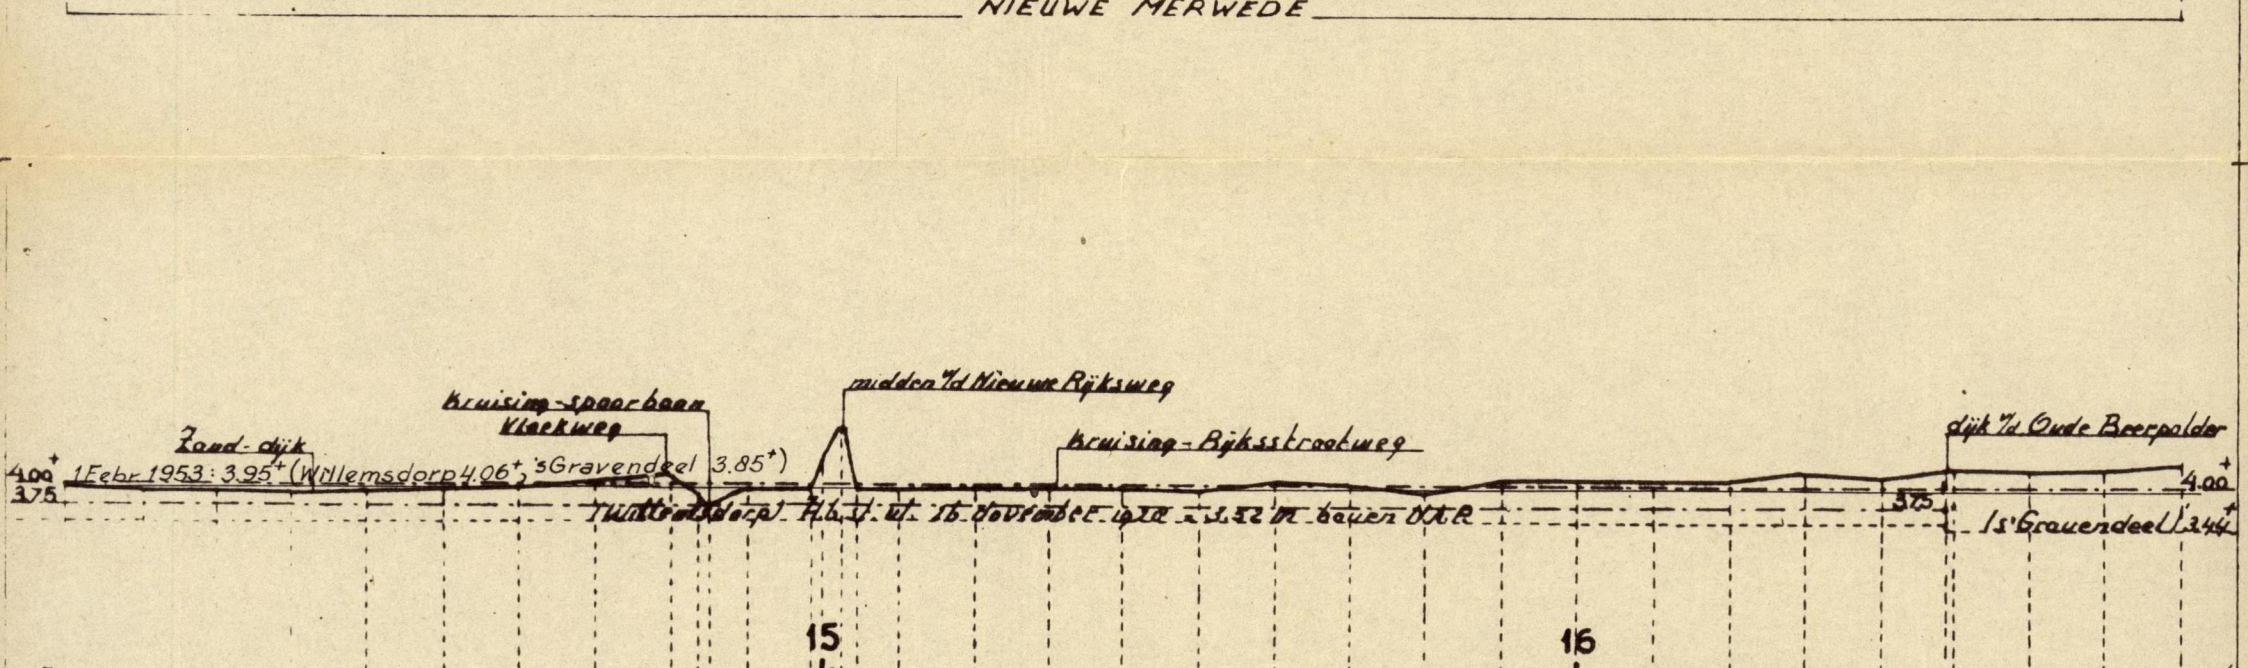 NIEUWE MERWEDE
midden v/d Nieuwe Rijksweg
Kruising-spoorbaan
Vlaekweg
Zand-dijk
Kruising-Rijksstraatweg
dijk v/d Oude Beerpolder
4.00+ 1 Febr. 1953: 3.95+ (Willemsdorp 4.06+, 's Gravendeel 3.85+)
4.00+
3.75
3.75
(Willemsdorp) H.b. november = 3.52 M. boven N.A.P.
('s Gravendeel) 3.44+
15
16